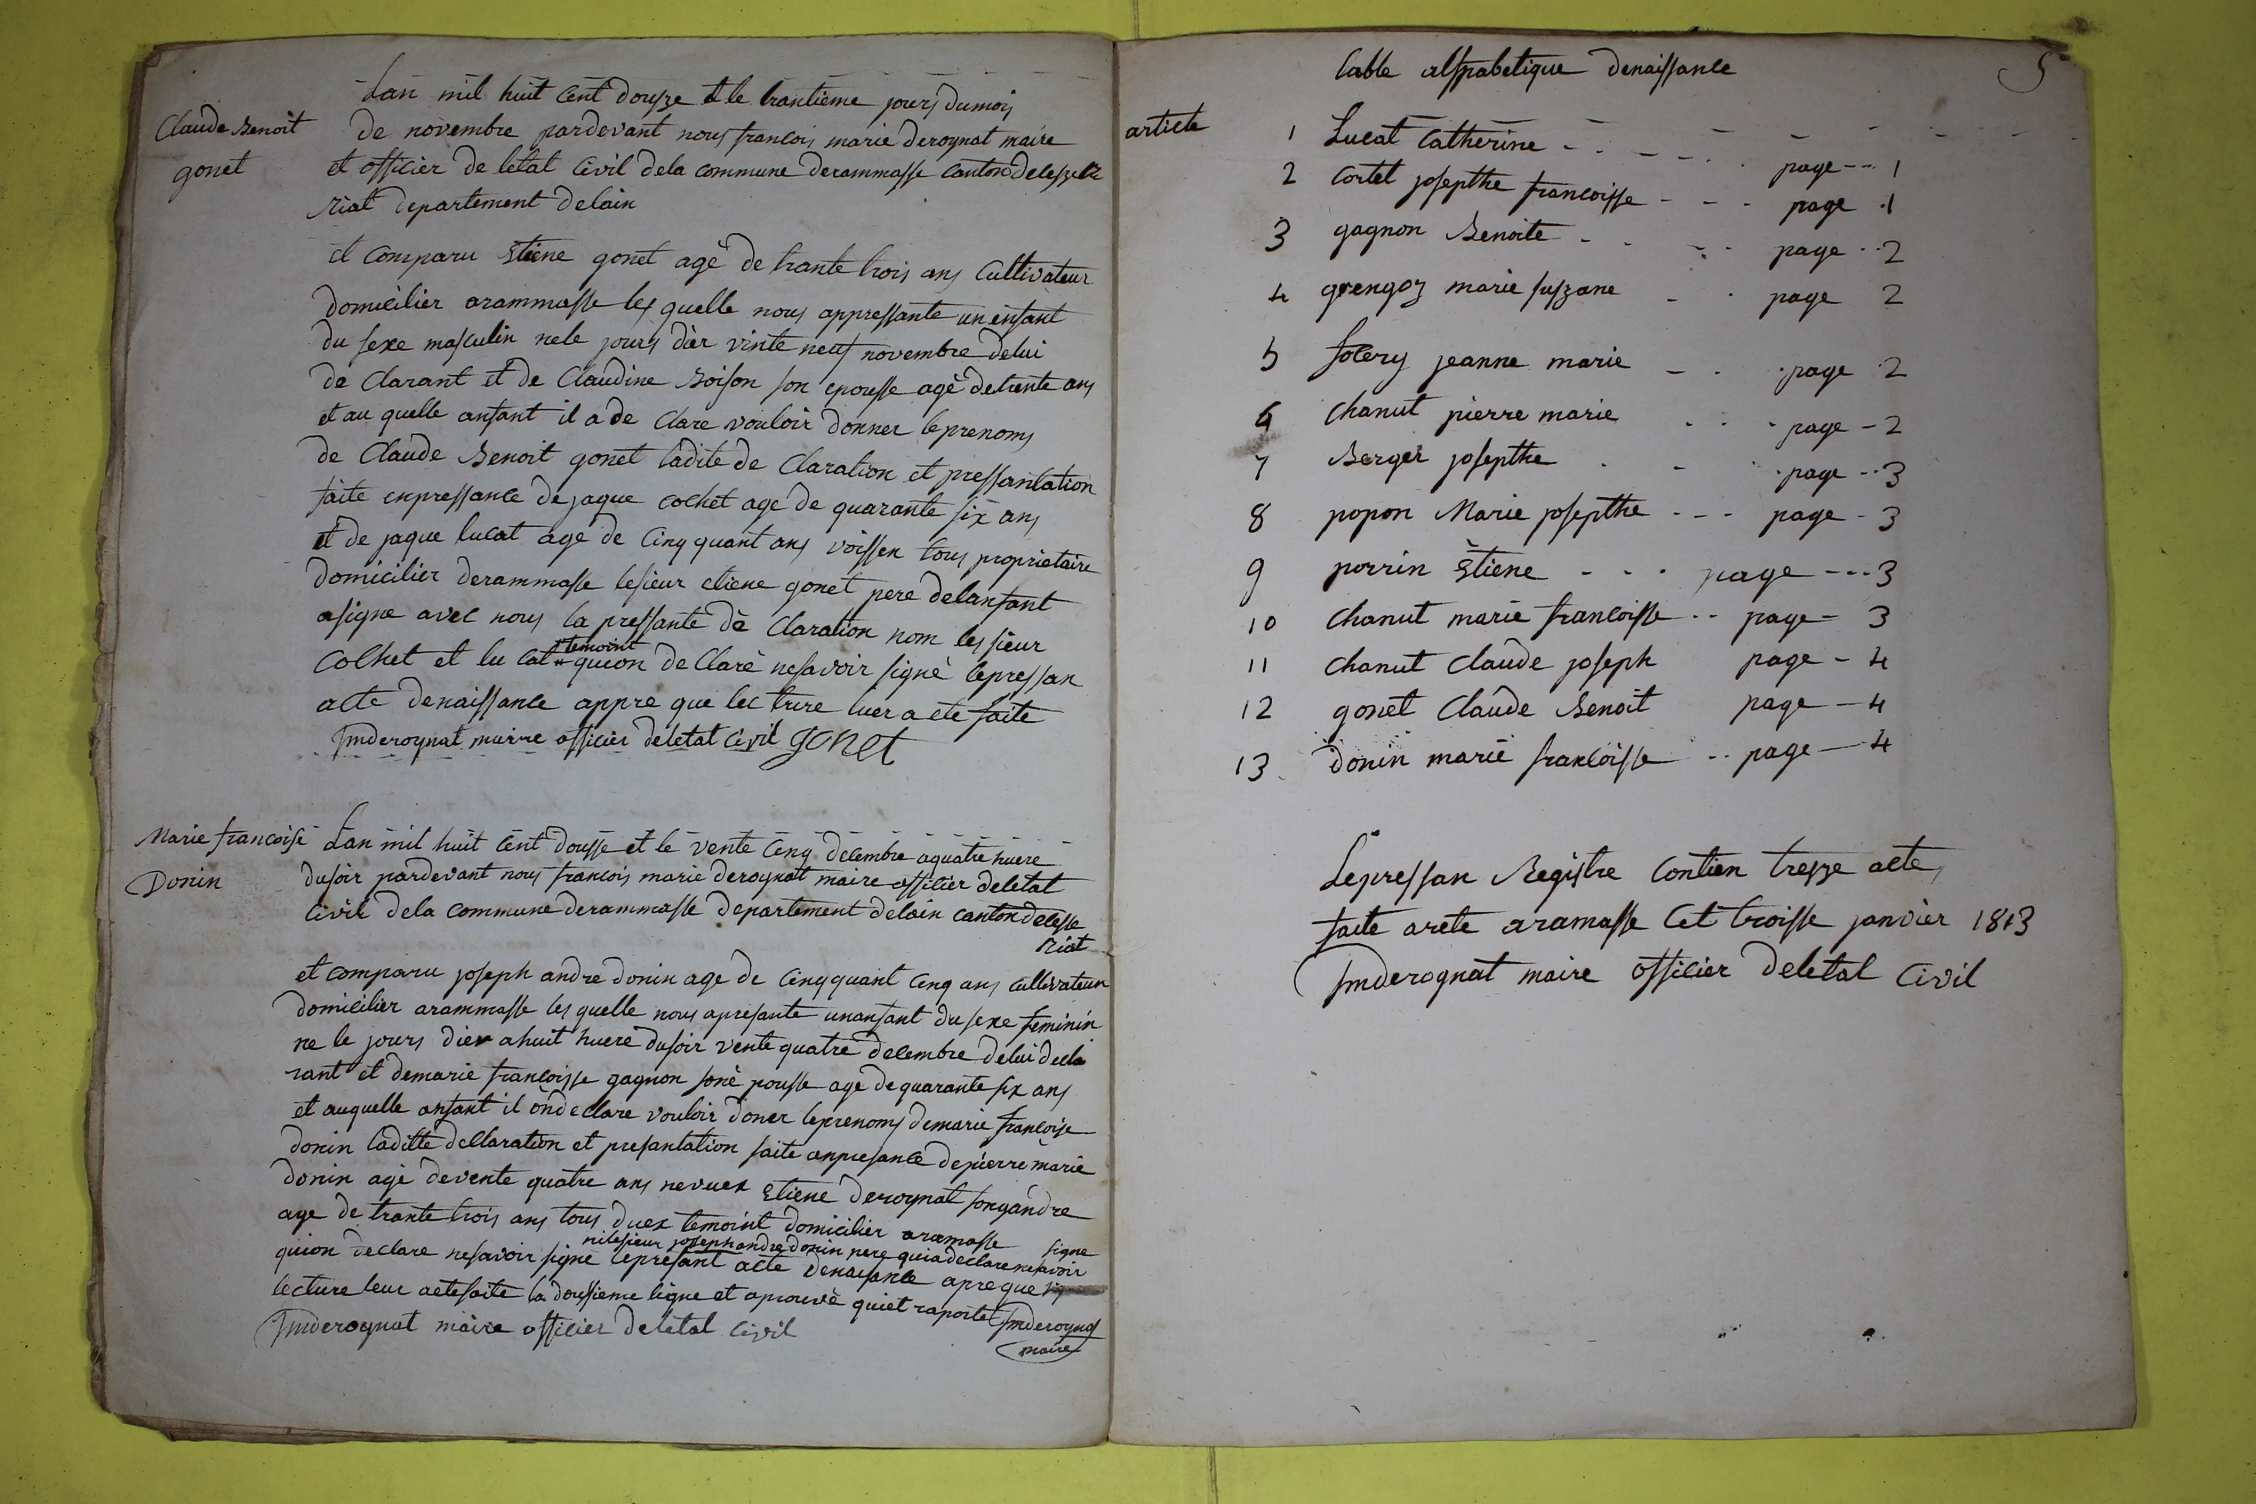 Claude Benoit
gonet
Lan mil huit cent douze et le trantieme jours du mois
de novembre pardevant nous francois marie derognat maire
et officier de letat civil dela commune derammasse canton de
riat departement delain
et comparu Etiene gonet agé de trante trois ans Cultivateur
domicilier arammasse les quelle nous appressante un enfant
du sexe masculin nele jours dièr vinte neuf novembre delui
de Clarant et de Claudine Boison son epousse agè detrente ans
et au quelle anfant il a de Clare vouloir donner leprenoms
de Claude Benoit gonet ladite de Claration et pressantation
faite enpressance de jaque cochet age de quarante six ans
et de jaque lucat age de Cinq quant ans voissen tous proprietaire
domicilier derammasse lesieur etiene gonet pere delanfant
asigne avec nous la pressante dè Claration nom les sieur
Cochet et lu cat temoint quion de Clarè nesavoir signè lepressan
acte denaissance appre que lec ture luer a ete faite
fmderognat maire officier deletat civil gonet
Marie francoise
Donin
Lan mil huit cent dousse et le vente cinq decembre aquatre huere
dusoir pardevant nous francois marie derognat maire officier deletat
Civil dela commune derammasse departement delain canton detresse
riat
et comparu joseph andre donin age de cinqquant cinq ans cultivateur
domicilier arammasse les quelle nous apresante unanfant du sexe feminin
ne le jours dier ahuit huere dusoir vente quatre decembre delui decla
rant et demarie francoisse gagnon sonè pousse age de quarante six ans
et auquelle anfant il on declare vouloir doner leprenoms demarie francoise
donin laditte decllaration et presantation faite anpresance depierre marie
donin agè devente quatre ans nevuex Etiene derognat songandre
age de trante trois ans tous duex temoint domicilier aramasse
nilesieur joseph andre donin pere quia declare nesavoir signe
quion declare nesavoir signe lepresant acte denaisance apre que
lecture leur aetefaite la doussieme ligne et aprouvè quiet raporte fmderognat
maire
fmderognat maire officier deletat civil
5
table alfpabetique denaissance
article 1 Lucat Catherine page 1
2 Cortet josepthe francoisse page 1
3 gagnon Benoite page 2
4 grengoz marie suszane page 2
5 folery jeanne marie page 2
6 Chanut pierre marie page 2
7 Berger josepthe page 3
8 popon Marie josepthe page 3
9 porrin Etiene page 3
10 Chanut marie francoisse page 3
11 Chanut Claude joseph page 4
12 gonet Claude Benoit page 4
13 donin marie francoisse page 4
Lepressan Registre Contien tresze acte,
faite arete aramasse Cet troisse janvier 1813
fmderognat maire officier deletat Civil